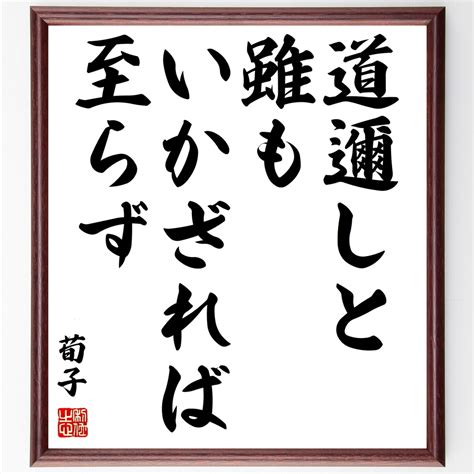 道邇しと
雖も
いかざれば
至らず
荀子